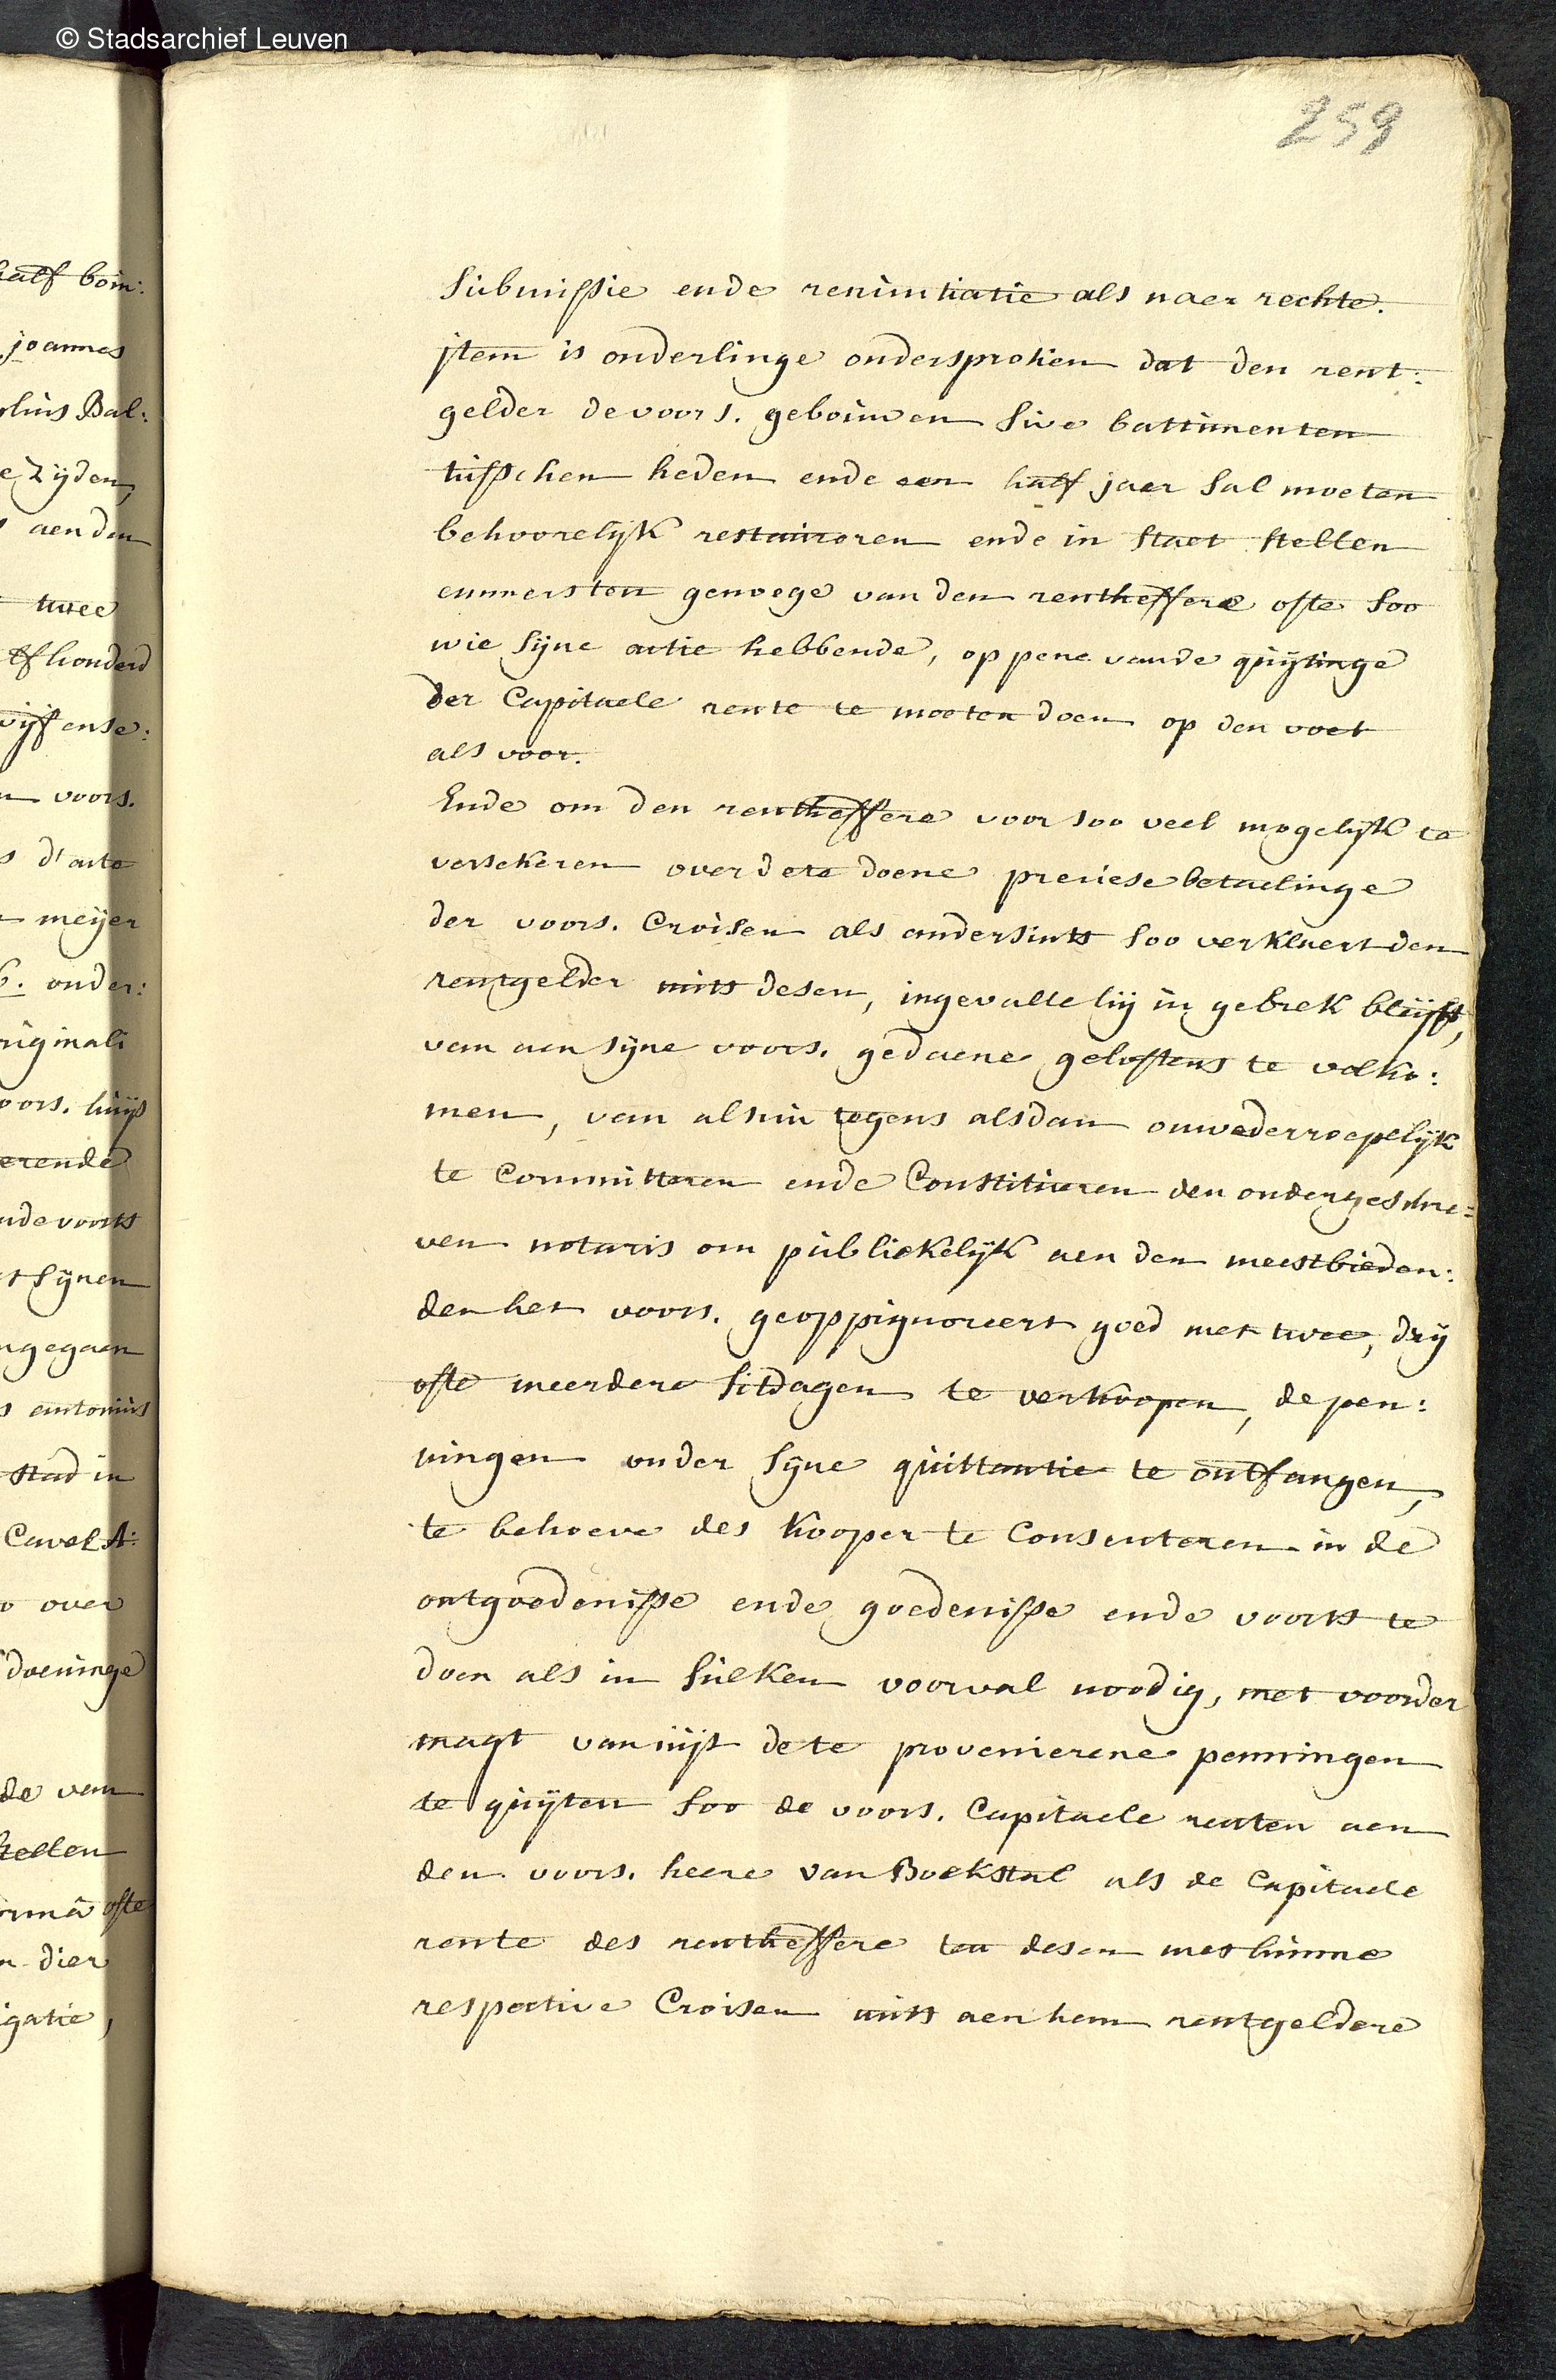 © Stadsarchief Leuven
259
half boin:
joannes
olius Bal:
e Zijden,
s aen den
t twee
lfhonderd
vijftense:
n voors.
s d'acte
meijer
6. onder:
riginali
oors. huijs
erende
nde voorts
et sijnen
ngegaen
s antonius
stad in
Cavel A:
o over
doeninge
de van
stellen
rmâ ofte
n dier
igatie,
submissie ende renuntiatie als naer rechte.
jtem is onderlinge ondersproken dat den rent:
gelder de voors. gebouwen sive battimenten
tusschen heden ende een half jaer sal moeten
behoorelijk restaureren ende in staet stellen
emmers ten genoege van den rentheffere ofte soo
wie sijne actie hebbende, op pene vande quijtinge
der Capitaele rente te moeten doen op den voet
als voor.
Ende om den rentheffere voor soo veel mogelijk te
versekeren over dete doene preciese betaelinge
der voors. Croisen als andersints soo verklaert den
rentgelder mits desen, ingevalle hij in gebrek blijft,
van aen sijne voors. gedaene geloftens te volko:
men, van alsnu tegens alsdan onwederroepelijk
te Committeren ende Constitueren den ondergeschre=
ven notaris om publiekelijk aen den meestbieden:
den het voors. geoppignoreert goed met twee, drij
ofte meerdere sitdagen te verkoopen, de pen:
ningen onder sijne quittantie te ontfangen,
te behoeve des kooper te Consenteren in de
ontgoedenisse ende goedenisse ende voorts te
doen als in sulken voorval noodig, met voorder
magt van uijt dete provenierene penningen
te quijten soo de voors. Capitaele renten aen
den voors. heere van Boekstal als de Capitaele
rente des rentheffere ten desen met hunne
respective Croisen mits aen hem rentgeldere